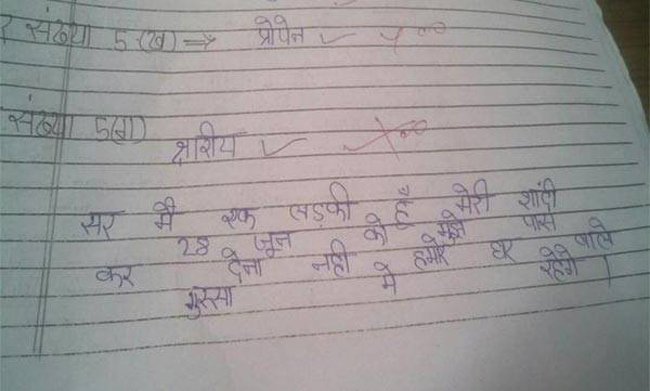 र संख्या 5(ख) ⇒ प्रोपेन
संख्या 5(ग)
क्षारीय
सर मै एक लड़की हूँ मेरी शादी
28 जून को है मुझे पास
कर देना नही हमारे घर वाले
गुस्सा मे रहेंगे ।